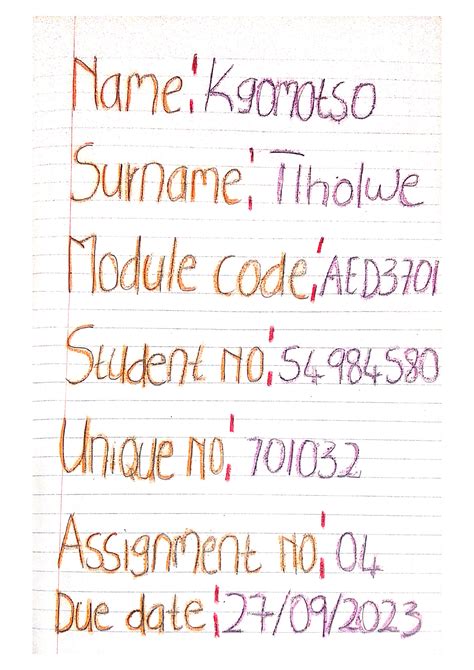 Name: Kgomotso
Surname: Tlholwe
Module code: AED3701
Student no: 54984580
Unique no: 701032
Assignment no: 04
Due date: 27/09/2023